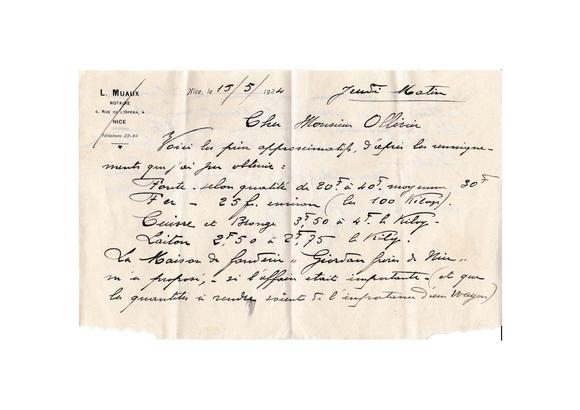 L. MUAUX
NOTAIRE
4, RUE DE L'OPÉRA, 4
NICE
Téléphone 22-84
Nice, le 15/5/1924
Jeudi Matin
Cher Monsieur Ollivier
Voici les prix approximatifs, d'après les renseigne-
ments que j'ai pu obtenir :
Fonte - selon qualité de 20F à 40F moyenne 30F
Fer - 25f. environ (les 100 Kilogs).
Cuivre et Bronze 3F,50 à 4F. le Kilog.
Laiton 2F.50 à 2F,75 le Kilog.
La Maison de fonderie " Giordan frères de Nice "
m'a proposé, - si l'affaire était importante (et que
les quantités à vendre soient de l'importance d'un wagon)